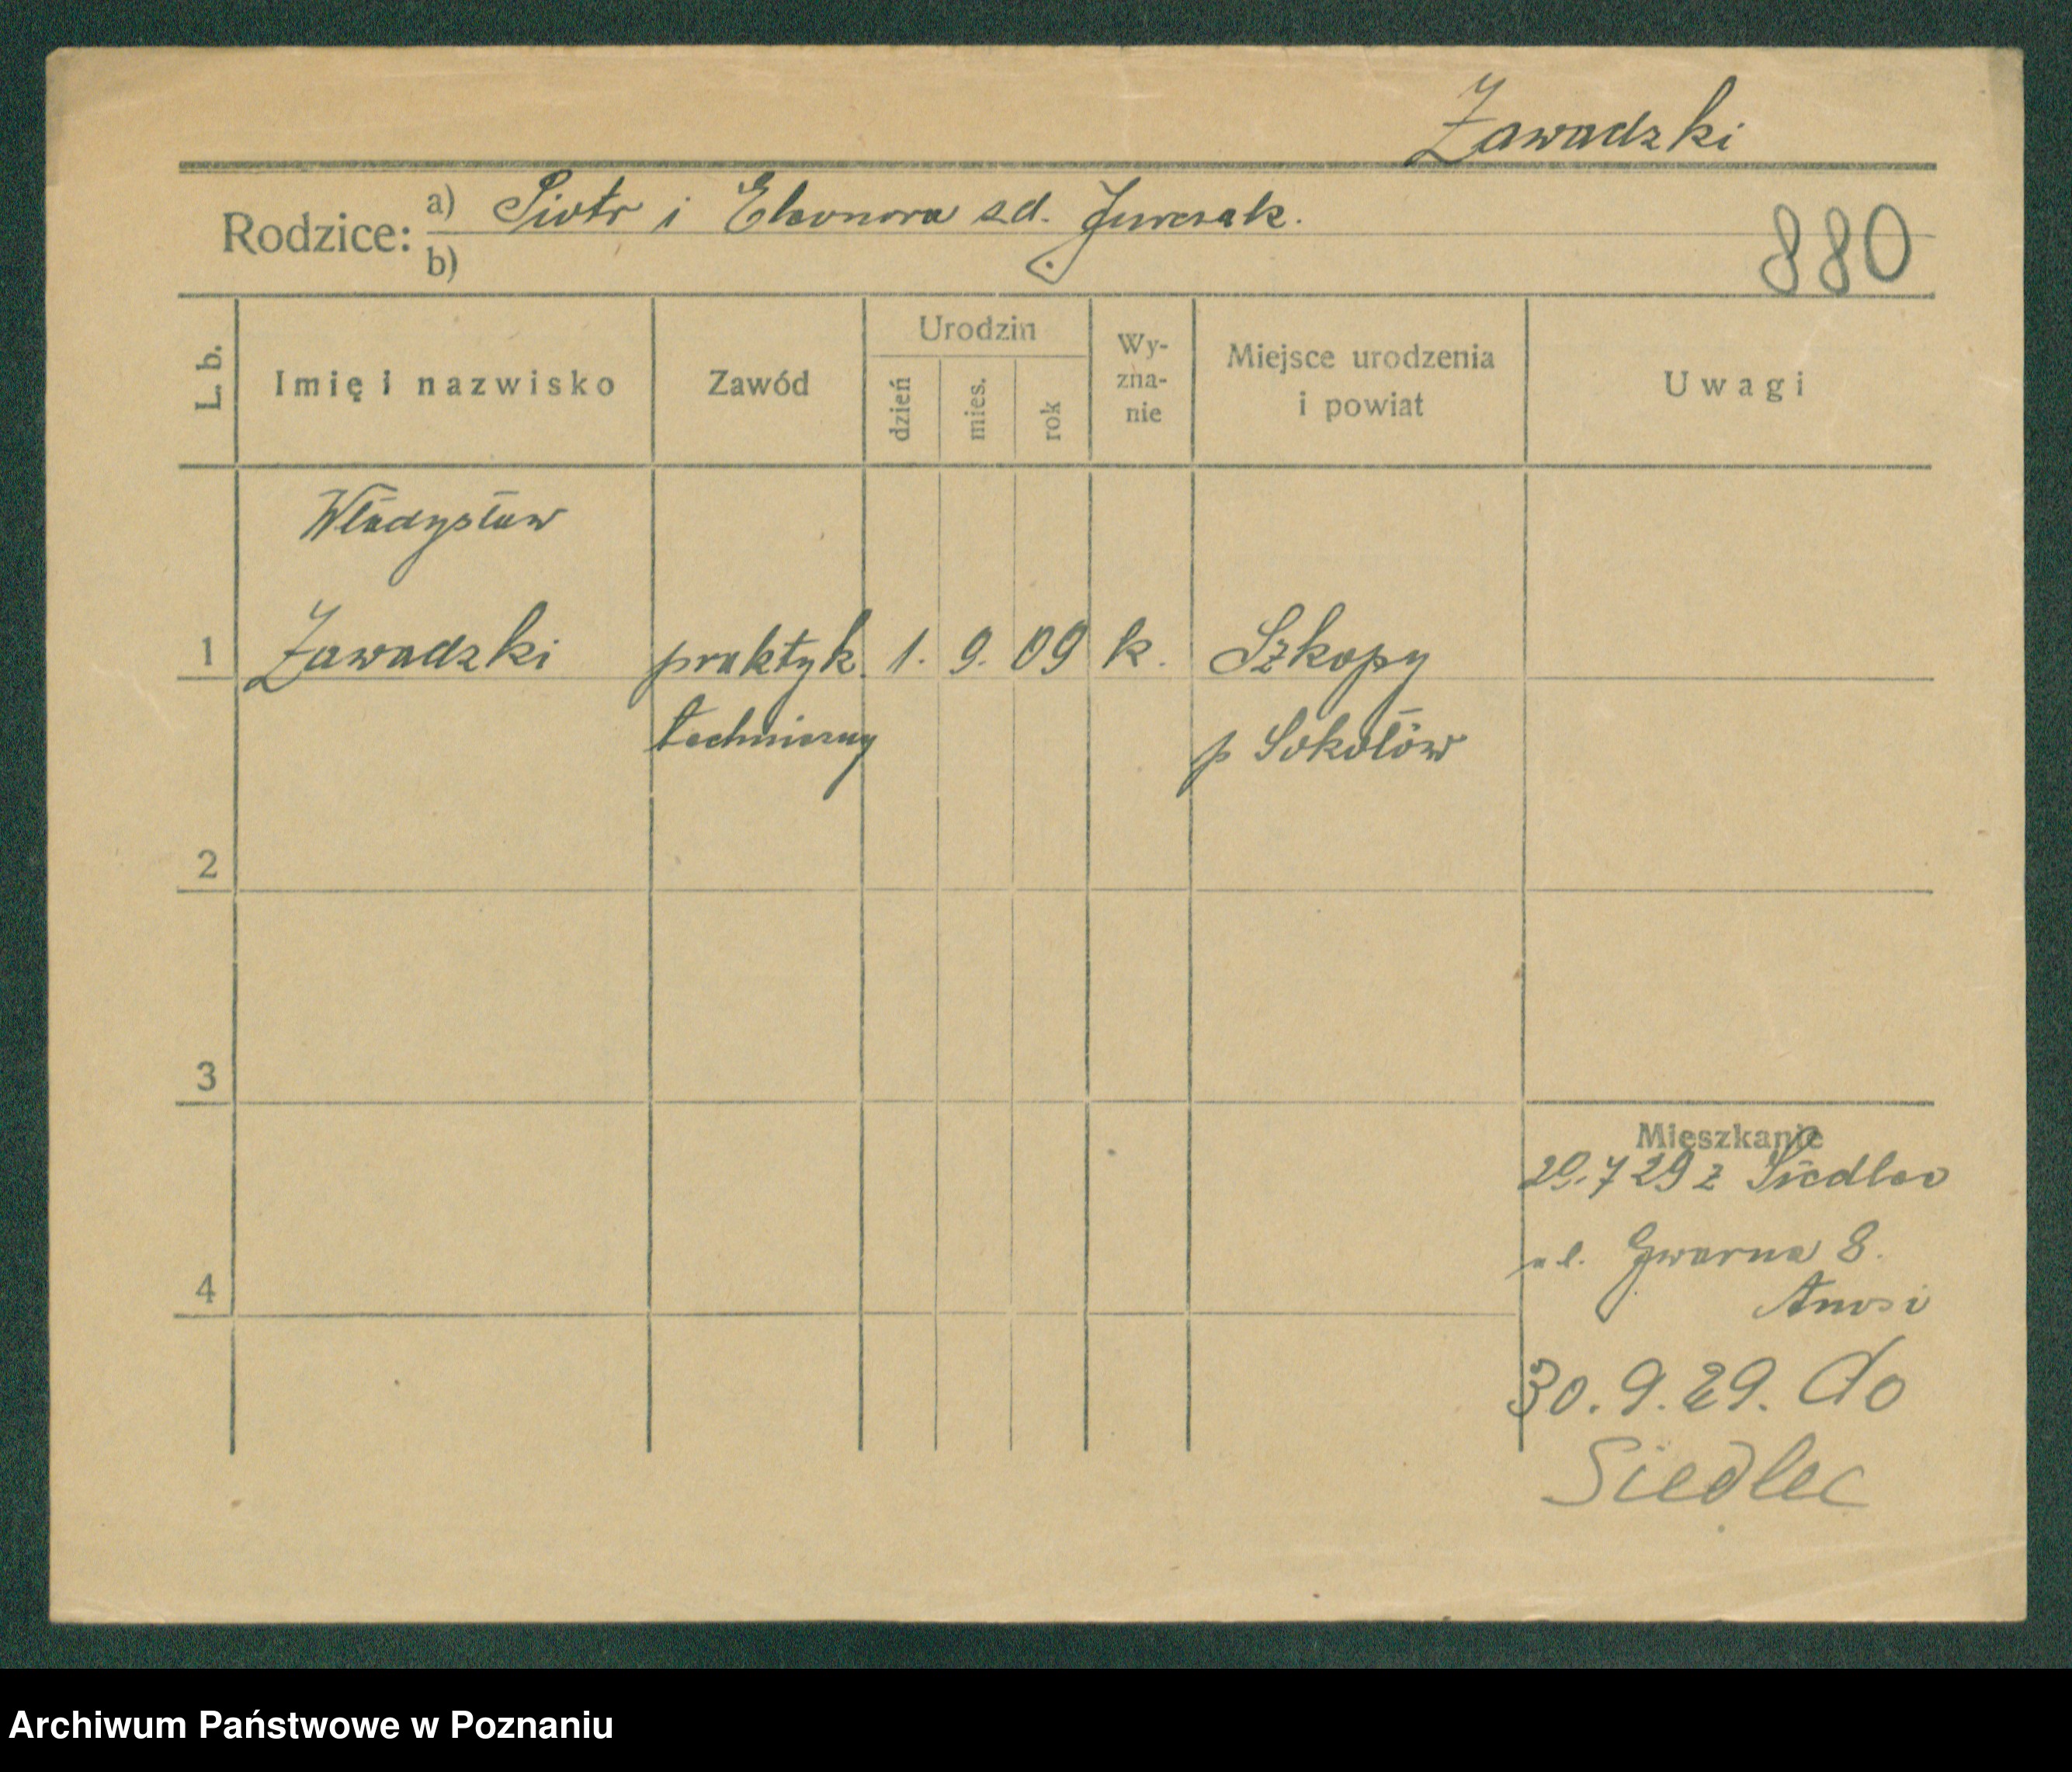 Zawadzki
Rodzice: a) Piotr i Eleonora zd. Jurczak.
b)
880
L. b. Imię i nazwisko Zawód Urodzin dzień mies. rok Wy-zna-nie Miejsce urodzenia i powiat Uwagi
Władysław
1 Zawadzki praktyk. 1. 9. 09 k. Szkopy
techniczny p Sokołów
2
3
Mieszkanie
29.7 29 z Siedlec
ul. Gwarna 8.
4
30.9.29. do
Siedlec
Archiwum Państwowe w Poznaniu